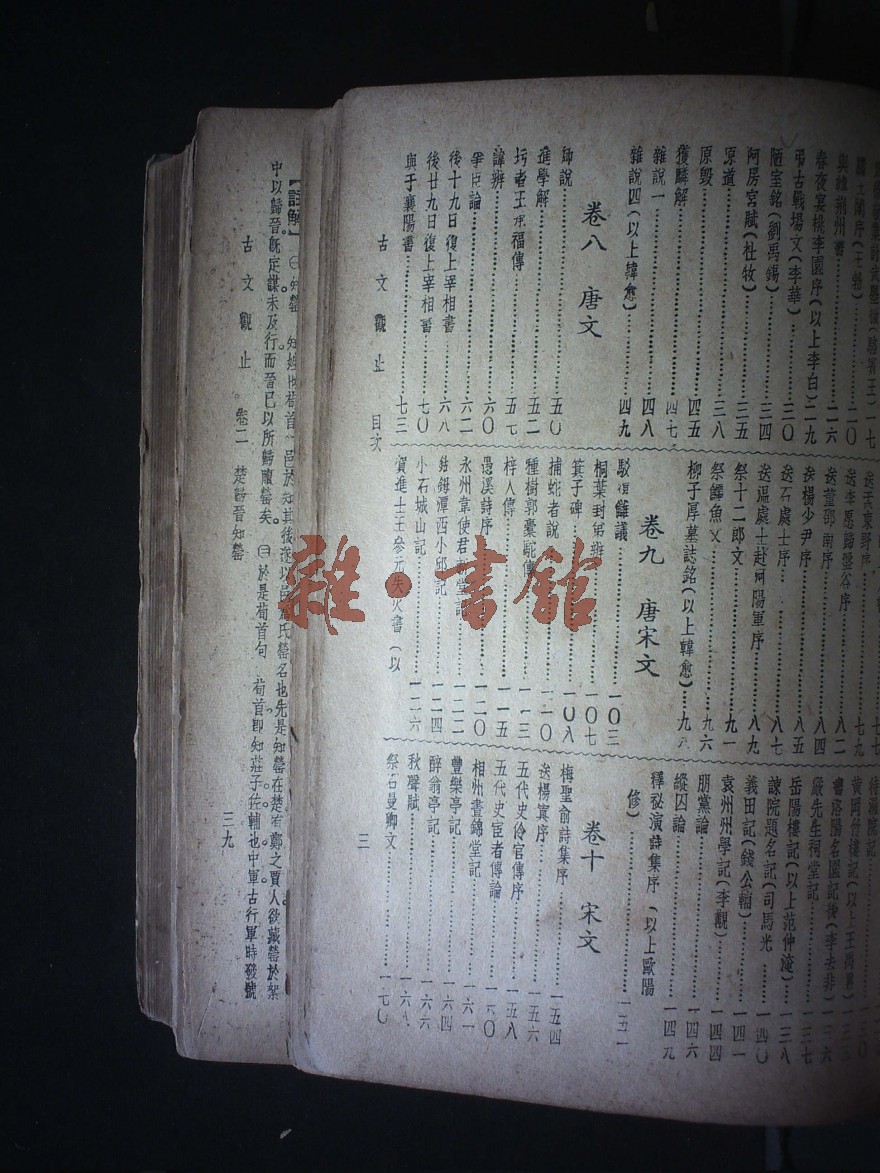 討武曌檄(駱賓王)一七
滕王閣序(王勃)……二〇
與韓荊州書……二六
春夜宴桃李園序(以上李白)二九
弔古戰場文(李華)……三〇
陋室銘(劉禹錫)……三四
阿房宮賦(杜牧)……三五
原道……三八
原毀……四五
獲麟解……四七
雜說一……四八
雜說四(以上韓愈)……四九
卷八 唐文
師說……五〇
進學解……五二
圬者王承福傳……五七
諱辨……六〇
爭臣論……六二
後十九日復上宰相書……六八
後廿九日復上宰相書……七〇
與于襄陽書……七三
七七
送孟東野序……七九
送李愿歸盤谷序……八二
送董邵南序……八四
送楊少尹序……八五
送石處士序……八七
送溫處士赴河陽軍序……八九
祭十二郎文……九一
祭鱷魚文……九六
柳子厚墓誌銘(以上韓愈)……九八
卷九 唐宋文
駁復讎議……一〇三
桐葉封弟辨……一〇七
箕子碑……一〇八
捕蛇者說……一一〇
種樹郭橐駝傳……一一三
梓人傳……一一五
愚溪詩序……一二〇
永州韋使君新堂記……一二二
鈷鉧潭西小邱記……一二四
小石城山記……一二六
賀進士王參元失火書(以
待漏院記
黃岡竹樓記(以上王禹偁)
書洛陽名園記後(李去非)一三六
嚴先生祠堂記……一三七
岳陽樓記(以上范仲淹)……一三八
諫院題名記(司馬光)……一四〇
義田記(錢公輔)……一四一
袁州州學記(李覯)……一四四
朋黨論……一四六
縱囚論……一四九
釋祕演詩集序(以上歐陽
修)……一五一
卷十 宋文
梅聖俞詩集序……一五四
送楊寘序……一五六
五代史伶官傳序……一五八
五代史宦者傳論……一六〇
相州晝錦堂記……一六一
豐樂亭記……一六四
醉翁亭記……一六六
秋聲賦……一六八
祭石曼卿文……一七〇
古文觀止 目次 三
【註解】㊀知罃 知姓也荀首
邑於知其後遂以邑為氏罃名也先是知罃在楚有鄭之賈人欲藏罃於絮
中以歸晉。旣定謀未及行而晉已以所歸贖罃矣。㊁於是荀首句 荀首卽知莊子佐輔也中軍古行軍時發號
古文觀止 卷二 楚歸晉知罃 三九
雜·書館